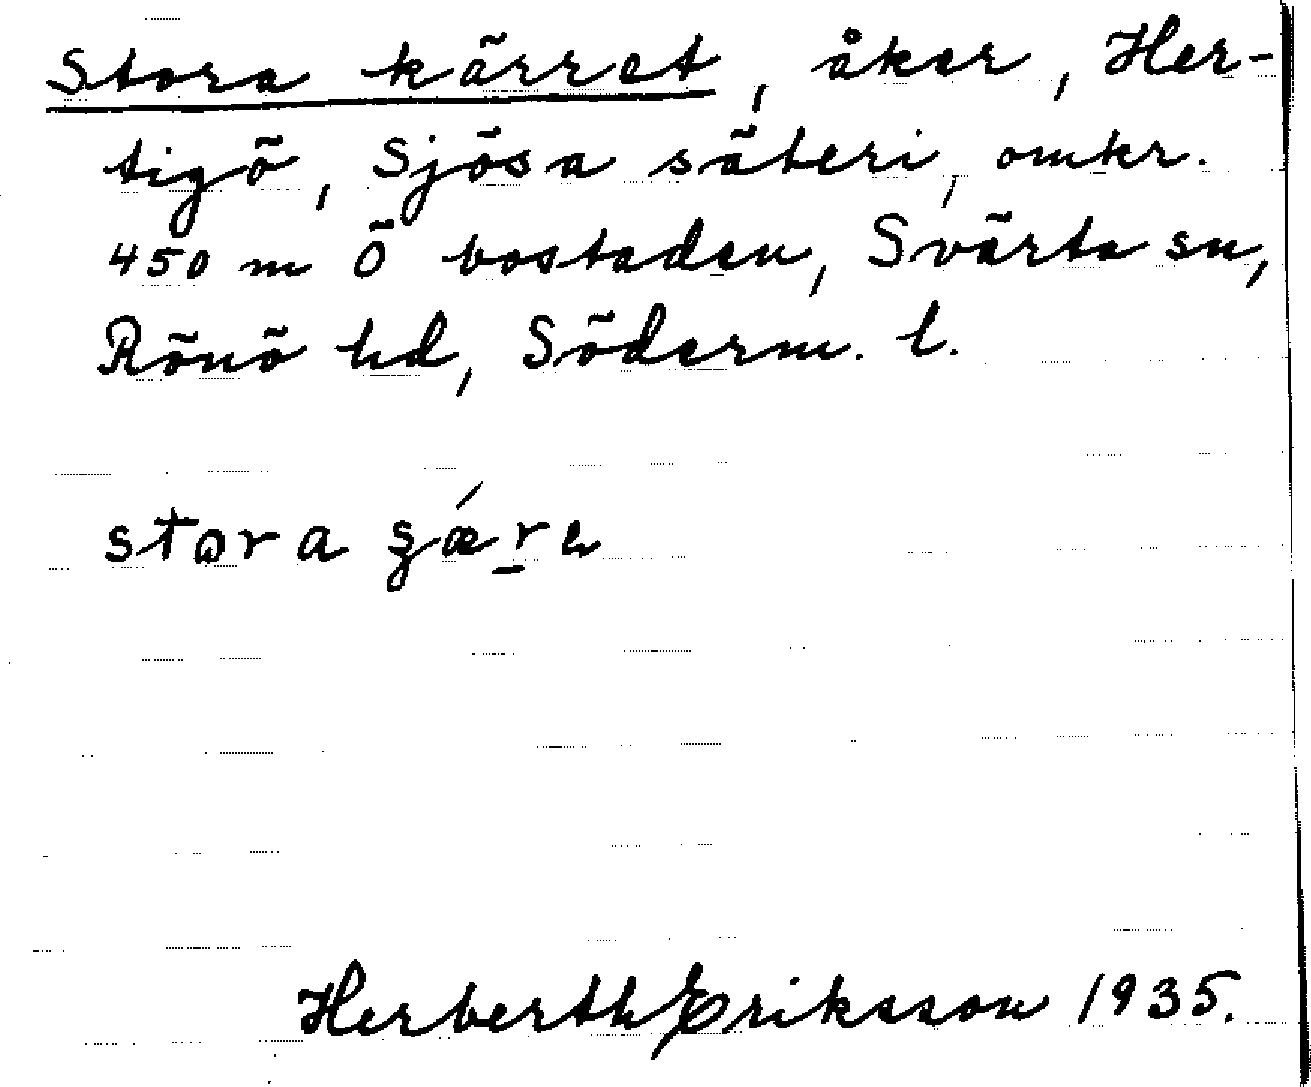 Stora kärret, åker, Her-
tigö, Sjösa säteri, omkr.
450 m Ö bostaden, Svärta sn,
Rönö hd, Söderm. l.
stora ʂǽrə
Herberth Eriksson 1935.